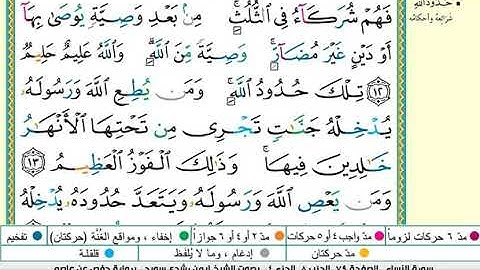 حُدُودُ اللَّهِ
شَرَائِعُهُ وَأَحْكَامُهُ
فَهُمْ شُرَكَآءُ فِى ٱلثُّلُثِ ۚ مِنۢ بَعْدِ وَصِيَّةٍ يُوصَىٰ بِهَآ
أَوْ دَيْنٍ غَيْرَ مُضَآرٍّ ۚ وَصِيَّةً مِّنَ ٱللَّهِ ۗ وَٱللَّهُ عَلِيمٌ حَلِيمٌ
١٢ تِلْكَ حُدُودُ ٱللَّهِ ۚ وَمَن يُطِعِ ٱللَّهَ وَرَسُولَهُۥ
يُدْخِلْهُ جَنَّـٰتٍ تَجْرِى مِن تَحْتِهَا ٱلْأَنْهَـٰرُ
خَـٰلِدِينَ فِيهَا ۚ وَذَٰلِكَ ٱلْفَوْزُ ٱلْعَظِيمُ ١٣
وَمَن يَعْصِ ٱللَّهَ وَرَسُولَهُۥ وَيَتَعَدَّ حُدُودَهُۥ يُدْخِلْهُ
مدّ ٦ حركات لزوماً مدّ ٢ أو ٤ أو ٦ جوازاً إخفاء، ومواقع الغُنَّة (حركتان) تفخيم
مدّ واجب ٤ أو ٥ حركات مدّ حركتان إدغام، وما لا يُلفَظ قلقلة
سورة النساء الصفحة ٧٩